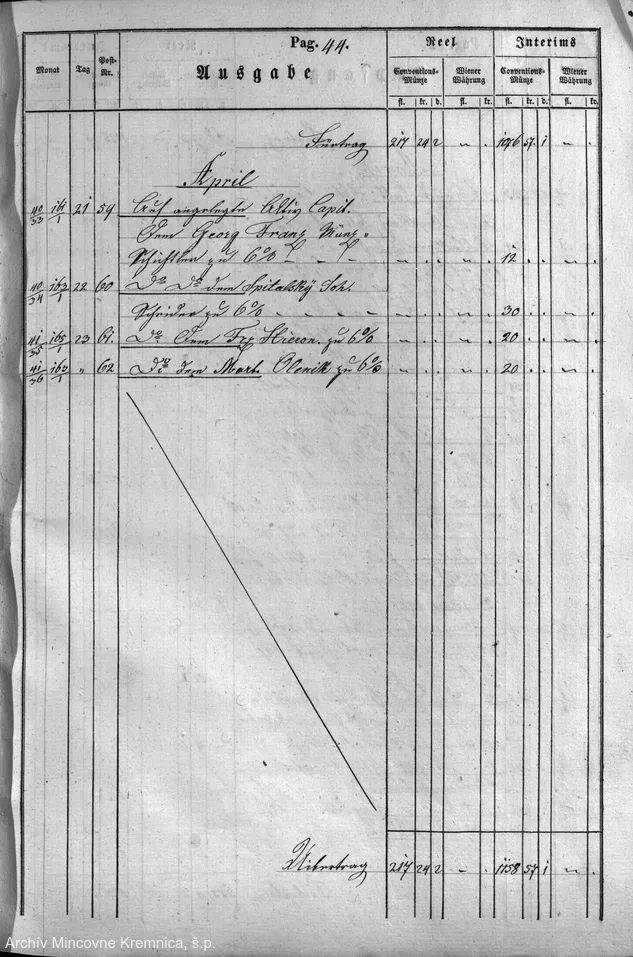 Pag. 44.
Reel Interims
Monat Tag Post-Nr. Ausgabe Conventions-Münze Wiener Währung Conventions-Münze Wiener Währung
fl. kr. d. fl. kr. fl. kr. d. fl. kr.
Fürtrag 217 24 2 " . 1076 57. 1 " .
April
40/33 161/1 21 59 Auf angelegte Activ Capit.
Dem Georg Franz Münz-
zu 6% " " " . . " . 12 . . " .
40/34 162/1 22 60 Do Do dem Spitalský Joh.
zu 6% " " " " " . . " . 30 . . " .
41/35 165/1 23 61. Do Dem Hieron. zu 6% " . . " . 20 . . " .
41/36 163/1 " 62 Do dem Mart. Olenik zu 6% " . . " . 20 . . " .
Uibertrag 217 24 2 " . 1158 57 1 " .
Archív Mincovne Kremnica, š.p.